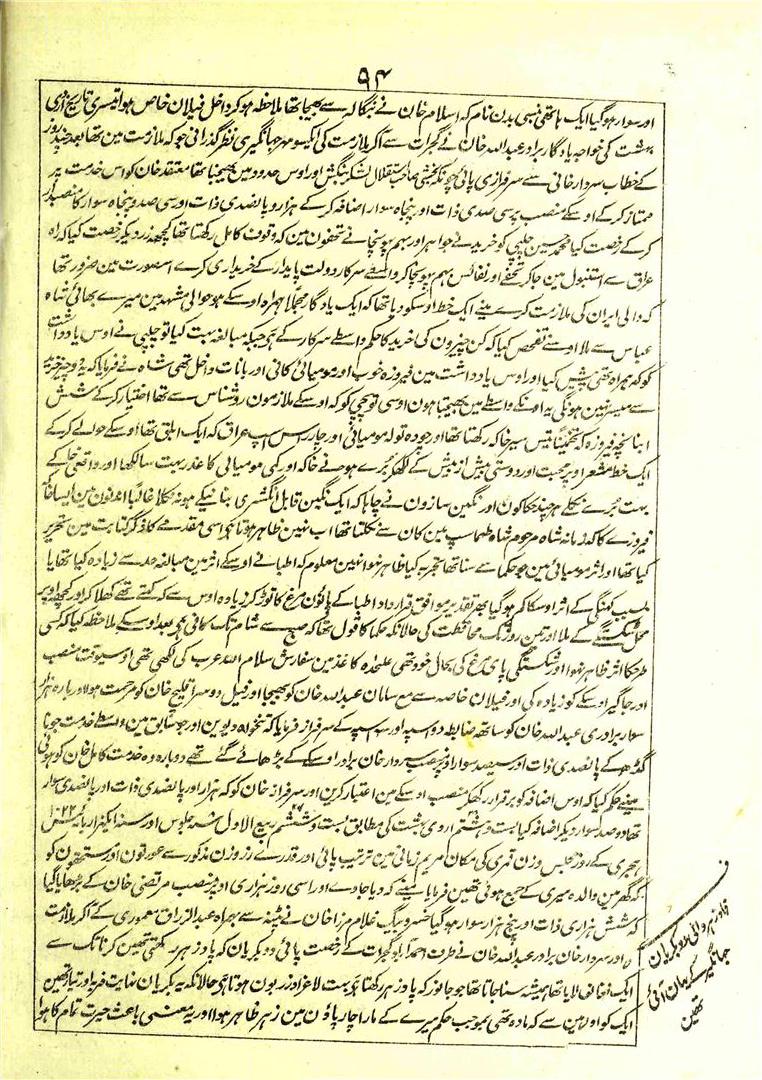 ۹۴
اور سوار ہو گیا ایک ہاتھی بنسی بدن نام کہ اسلام خان نے بنگالہ سے بھیجا تھا ملاحظہ ہو کر داخل فیلان خاص ہوا تیسری تاریخ اردی
بہشت کی خواجہ یادگار برادر عبداللہ خان نے گجرات سے آکر ملازمت کی ایکسو مہر جہانگیری نذر گذرانی جو کہ ملازمت مین تھا بعد چند روز
کے خطاب سردار خانی سے سرفرازی پائی چونکہ بخشی صاحب استقلال لشکر بنگش اور اوس حدود مین بھیجنا تھا معتقد خان کو اس خدمت پر
ممتاز کر کے اوسکے منصب پر سی صدی ذات اور پنجاہ سوار اضافہ کر کے ہزار و پانصدی ذات اور سی صد و پنجاہ سوار کا منصبدار
کر کے رخصت کیا محمد حسین چلپی کو خریدنے جواہر اور بہم پہونچانے تحفون مین کہ وقوف کامل رکھتا تھا کچھ زر دیکر رخصت کیا کہ راہ
عراق سے استنبول مین جا کر تحفے اور نفائس بہم پہونچا کر واسطے سرکار دولت پایدار کے خریداری کرے اس صورت مین ضرور تھا
کہ والی ایران کی ملازمت کرے مینے ایک خط اوسکو دیا تھا کہ ایک یادگار مجملاً ہمراہ اوسکے ہو حوالی مشہد مین میرے بھائی شاہ
عباس سے ملا اوسنے تفحص کیا کہ کن چیزون کی خرید کا حکم واسطے سرکار کے ہی جبکہ مبالغہ بہت کیا تو چلپی نے اوس یادداشت
کو کہ ہمراہ تھی پیش کیا اور اوس یادداشت مین فیروزہ خوب اور مومیائی کانی اور بانات داخل تھی شاہ نے فرمایا کہ یہ دو چیز خرید
سے میسر نہین ہونگی یہ اونکے واسطے مین بھیجتا ہون اوسی توپچی کو کہ اوسکے ملازمون روشناس سے تھا اختیار کر کے شش
انبانچہ فیروزہ کہ تخمیناً تیس سیر خاکہ رکھتا تھا اور چودہ تولہ مومیائی اور چار راس اسپ عراق کہ ایک ابلق تھا اوسکے حوالے کر کے
ایک خط مشعر اوپر محبت اور دوستی بیش از بیش کے لکھکر بُرے ہونے خاکہ اور کمی مومیائی کا عذر بہت سا لکھا اور واقعی خاکے
بہت بُرے نکلے ہر چند حکاکون اور نگین سازون نے چاہا کہ ایک نگین قابل انگشتری بنانیکے ہو نہ نکلا غالباً اندنون مین ایسا خاکہ
فیروزے کا کہ زمانہ شاہ مرحوم شاہ طہماسپ مین کان سے نکلتا تھا اب نہین ظاہر ہوتا ہی اسی مقدمے کا ذکر کتابت مین تحریر
کیا تھا اور اثر مومیائی مین جو حکما سے سنا تھا تجربہ کیا ظاہر نہوا نہین معلوم کہ اطبا نے اوسکے اثر مین مبالغہ حد سے زیادہ کیا تھا یا
بسبب کہنگی کے اثر اوسکا کم ہو گیا بہر تقدیر موافق قرارداد اطبا کے پائون مرغ کا توڑکر زیادہ اوس سے کہ کہتے تھے کھلا کر اور کچھ اوپر
محل شکستگے کے ملا اور تین روز تک محافظت کی حالانکہ حکما کا قول تھا کہ صبح سے شام تک کافی ہی بعد اوسکے ملاحظہ کیا کہ کسی
طرح کا اثر ظاہر نہوا اور شکستگی پای مرغ کی بحال خود تھی علیحدہ کاغذ مین سفارش سلام اللہ عرب کی لکھی تھی اوسیوقت منصب
اور جاگیر اوسکے کو زیادہ کی اور فیلان خاصہ سے مع سامان عبداللہ خان کو بھیجا اور فیل دوسرا قلیج خان کو مرحمت ہوا اور بارہ ہزار
سوار برادری عبداللہ خان کو ساتھ ضابطہ دو اسپہ اور سہ اسپہ کے سرفراز فرمایا کہ تنخواہ دیوین اور جو سابق مین واسطے خدمت جونا
گڈھ کے پانصدی ذات اور سیصد سوار اوپر منصب سردار خان برادر اوسکے کے بڑھائے گئے تھے دوبارہ وہ خدمت کامل خان کو ہوئی
مینے حکم کیا کہ اوس اضافہ کو برقرار رکھکر منصب اوسکے مین اعتبار کرین اور سرفراز خان کو کہ ہزار اور پانصدی ذات اور پانصدی سوار
تھا دو صد سوار دیگر اضافہ کیا بست و ہشتم اردی بہشت کی مطابق بست و ششم ربیع الاول سنہ جلوس اور سنہ ایکہزار بائیس ۱۰۲۲
ہجری کے روز مجلس وزن قمری کی مکان مریم زمانی مین ترتیب پائی اور قدرے زر وزن مذکور سے عورتون اور مستحقون کو
کہ گھر مین والدہ میری کے جمع ہوئی تھین فرمایا مینے کہ دیا جاوے اور اسی روز ہزاری اوپر منصب مرتضی خان کے بڑھایا گیا
کہ شش ہزاری ذات اور پنج ہزار سوار ہو گیا خسرو بیگ غلام مرزا خان نے پٹنہ سے ہمراہ عبدالرزاق معموری کے آکر ملازمت
اور سردار خان برادر عبداللہ خان نے طرف احمدآباد گجرات کے رخصت پائی دو بکریان کہ پازہر رکھتی تھین کرناٹک سے
ایک افغان لایا تھا ہمیشہ سنا جاتا تھا جو جانور کہ پازہر رکھتا ہو بہت لاغر اور زبون ہوتا ہی حالانکہ یہ بکریان نہایت فربہ اور تیار تھین
ایک کو اون مین سے کہ مادہ تھی بموجب حکم میرے کے مارا چار پاؤن مین زہر ظاہر ہوا اور یہ معنی باعث حیرت تمام کا ہوا
ف
پادزہر والی دو بکریان
جہانگیر کے یہان آئی
تھین